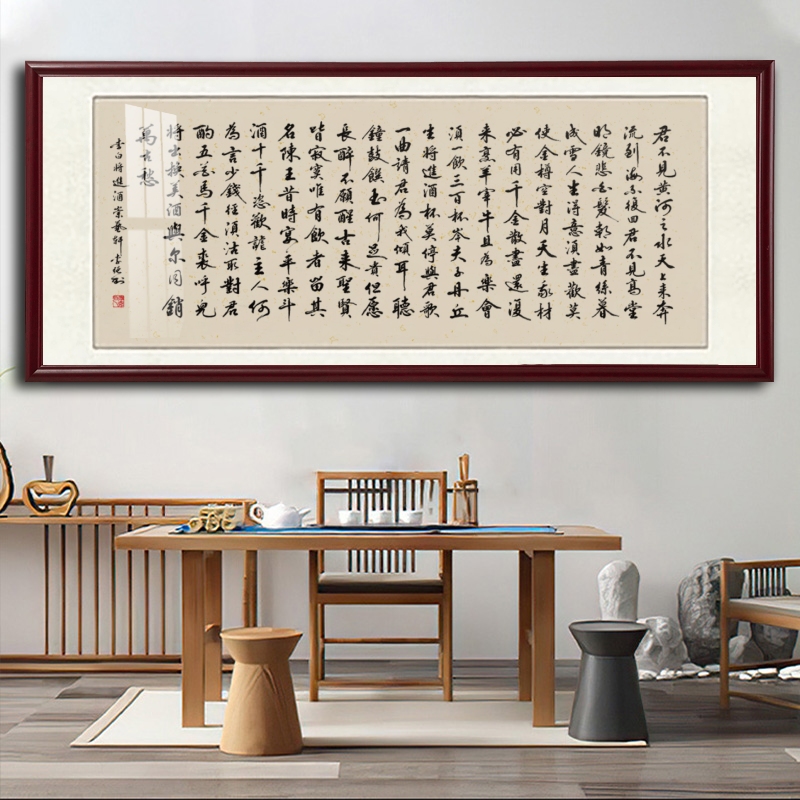 君不見黄河之水天上来奔
流到海不復回君不見高堂
明鏡悲白髮朝如青絲暮
成雪人生得意須盡歡莫
使金樽空對月天生我材
必有用千金散盡還復
来烹羊宰牛且為樂會
須一飲三百杯岑夫子丹丘
生將進酒杯莫停與君歌
一曲請君為我傾耳聽
鐘鼓饌玉何足貴但愿
長醉不願醒古来聖賢
皆寂寞唯有飲者留其
名陳王昔時宴平樂斗
酒十千恣歡謔主人何
為言少錢徑須沽取對君
酌五花馬千金裘呼兒
將出換美酒與尔同銷
萬古愁
李白將進酒崇藝軒